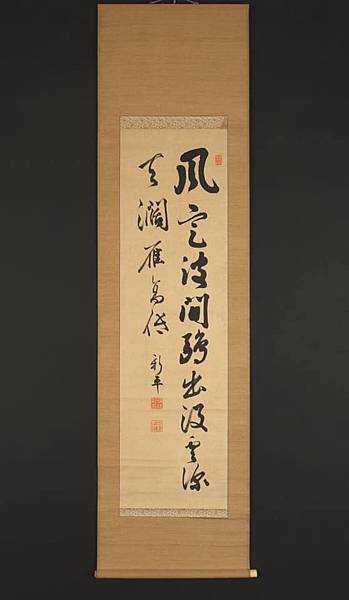 風定波間鷗出没雲深
天濶雁高低
新平